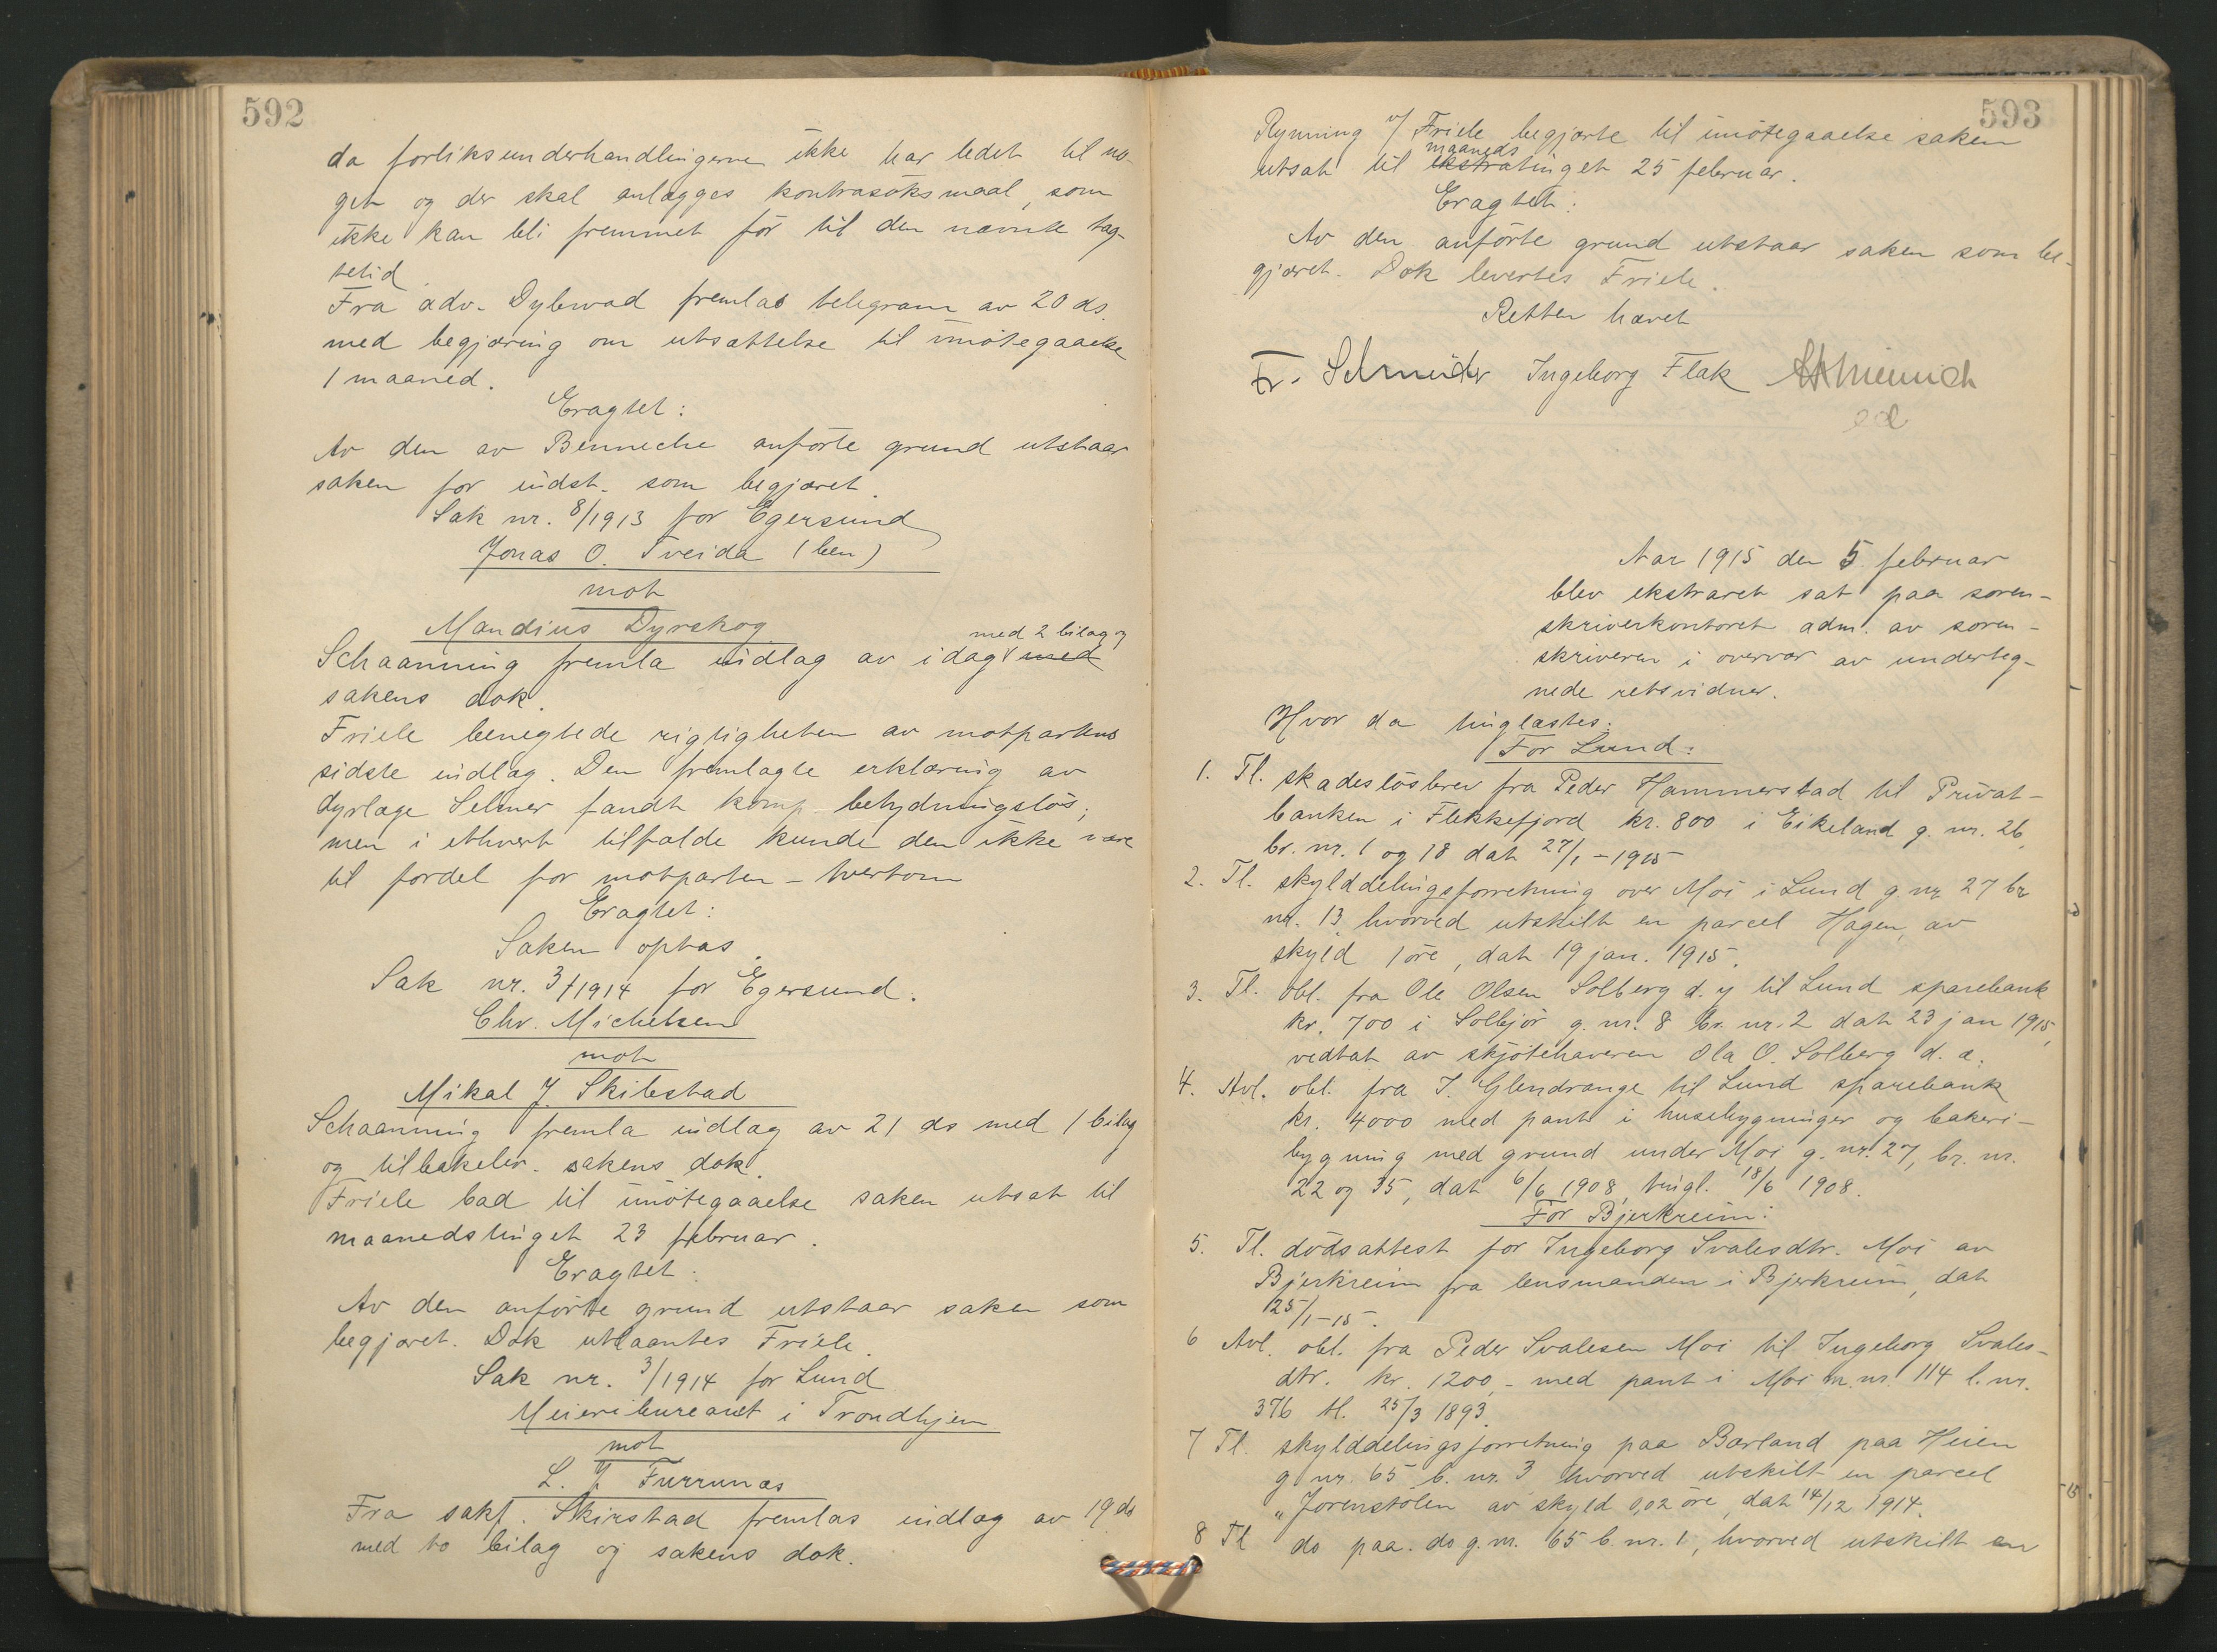 592
da forliksunderhandlingerne ikke har ledet til no-
get og der skal anlægges kontrasøksmaal, som
ikke kan bli fremmet før til den nævnte tæg-
tetid.
Fra adv. Dybwad fremlas telegram av 20 ds.
med begjæring om utsættelse til imøtegaaelse
1 maaned.
Eragtet:
Av den av Benneche anførte grund utstaar
saken for indst. som begjæret.
Sak nr. 8/1913 for Egersund
Jonas O. Tveida (ben)
mot
Mandius Dyrskog
med 2 bilag og
Schaanning fremla indlag av idag med
sakens dok.
Friele benegtede rigtigheten av motpartens
sidste indlæg. Den fremlagte erklæring av
dyrlæge Selmer fandt komp. betydningsløs;
men i ethvert tilfælde kunde den ikke være
til fordel for motparten - tvertom
Eragtet:
Saken optas.
Sak nr. 3/1914 for Egersund.
Chr. Michelsen
mot
Mikal J. Skibstad
Schaanning fremla indlæg av 21 ds med 1 bilag
og tilbakelev. sakens dok.
Friele bad til imøtegaaelse saken utsat til
maanedstinget 23 februar.
Eragtet:
Av den anførte grund utstaar saken som
begjæret. Dok utlaantes Friele.
Sak nr. 3/1914 for Lund
Meieribureauet i Trondhjem
mot
L. J. Furrunæs
Fra sakf. Skirstad fremlas indlæg av 19 ds
med to bilag og sakens dok.
593
Rynning v/ Friele begjærte til imøtegaaelse saken
maaneds
utsat til ekstratinget 25 februar.
Eragtet:
Av den anførte grund utstaar saken som be-
gjæret. Dok levertes Friele.
Retten hævet
Fr. Schneider Ingeborg Flak
Aar 1915 den 5. februar
blev ekstraret sat paa soren-
skriverkontoret adm. av soren-
skriveren i overvær av underteg-
nede retsvidner.
Hvor da tinglæstes:
For Lund:
1. Tl. skadesløsbrev fra Peder Hammerstad til Privat-
banken i Flekkefjord kr. 800 i Eikeland g. nr. 26,
br. nr. 1 og 18 dat 27/1-1915
2. Tl. skylddelingsforretning over Moi i Lund g. nr 27 br
nr. 13, hvorved utskilt en parcel Hagen, av
skyld 1 øre, dat 19 jan. 1915.
3. Tl. obl. fra Ole Olsen Solberg d. y til Lund sparebank
kr. 700 i Solbjør g. nr. 8 br. nr. 2 dat 23 jan 1915,
vedtat av skjøtehaveren Ola O. Solberg d. æ.
4. Avl. obl. fra I. Glendrange til Lund sparebank
kr. 4000 med pant i husebygninger og bakeri-
bygning med grund under Moi g. nr. 27, br. nr.
22 og 35, dat 6/6 1908, tingl. 18/6 1908.
For Bjerkreim:
5. Tl. dødsattest for Ingeborg Svalesdtr. Moi av
Bjerkreim fra lensmanden i Bjerkreim, dat
25/1-15.
6 Avl. obl. fra Peder Svalesen Moi til Ingeborg Svales-
dtr. kr. 1200,- med pant i Moi m. nr. 114 l. nr.
376 tl. 25/3 1893.
7 Tl. skylddelingsforretning paa Børland paa Heien
g nr. 65 b. nr. 3 hvorved utskilt en parcel
"Jorenstølen av skyld 0,02 øre, dat 14/12 1914.
8 Tl do paa. do g. nr. 65 b. nr. 1, hvorved utskilt en